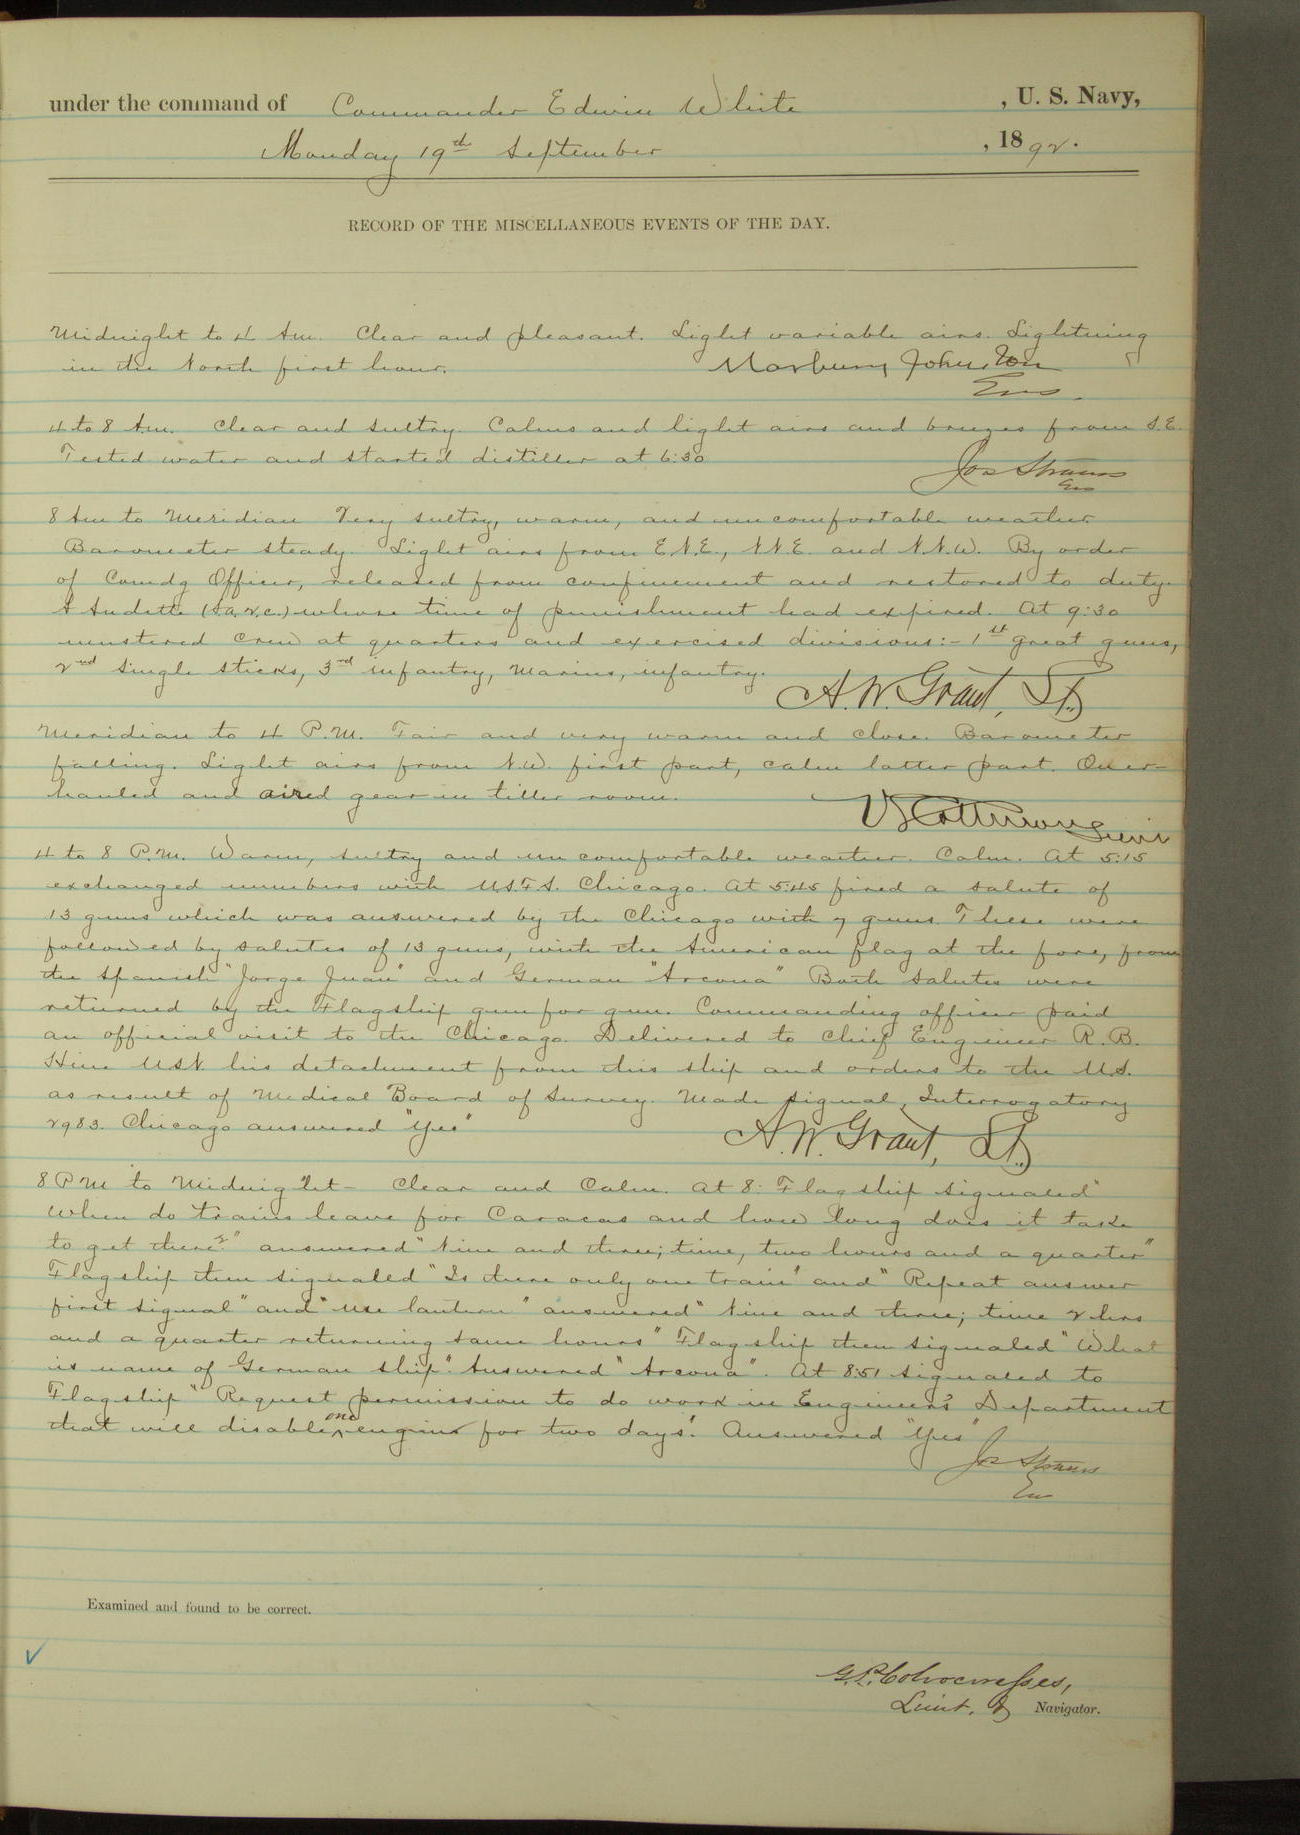 under the command of Commander Edwin White , U. S. Navy,
Monday 19th September , 1892.
RECORD OF THE MISCELLANEOUS EVENTS OF THE DAY.
Midnight to 4 Am. Clear and pleasant. Light variable airs. Lightning
in the North first hour. Marbury Johnston
Ens.
4 to 8 Am. Clear and sultry. Calms and light airs and breezes from S.E.
Tested water and started distiller at 6:30
Jos Strauss
Ens
8 Am to Meridian Very sultry, warm, and uncomfortable weather.
Barometer steady. Light airs from E.N.E., N.N.E. and N.N.W. By order
of Comdg Officer, released from confinement and restored to duty.
A Audette whose time of punishment had expired. At 9:30
mustered crew at quarters and exercised divisions:- 1st great guns,
2nd Single sticks, 3rd infantry, Marines, infantry.
A. W. Grant, Lt.
Meridian to 4 P.M. Fair and very warm and close. Barometer
falling. Light airs from N.W. first part, calm latter part. Over-
hauled and aired gear in tiller room.
Lieut
4 to 8 P.M. Warm, sultry and uncomfortable weather. Calm. At 5:15
exchanged numbers with U.S.F.S. Chicago. At 5:45 fired a salute of
13 guns which was answered by the Chicago with 7 guns. These were
followed by salutes of 13 guns, with the American flag at the fore, from
the Spanish "Jorge Juan" and German "Arcona" Both salutes were
returned by the Flagship gun for gun. Commanding officer paid
an official visit to the Chicago. Delivered to Chief Engineer R. B.
Hine U.S.N. his detachment from this ship and orders to the U.S.
as result of Medical Board of Survey. Made signal, Interrogatory
2983. Chicago answered "Yes"
A. W. Grant, Lt.
8 P M to Midnight - Clear and Calm. At 8: Flagship signaled "
When do trains leave for Caracas and how long does it take
to get there?" answered "Nine and three; time, two hours and a quarter"
Flagship then signaled "Is there only one train" and "Repeat answer
first signal" and "use lantern" answered "Nine and three; time 2 hrs
and a quarter returning same hours" Flagship then signaled "What
is name of German ship". Answered "Arcona". At 8:51 signaled to
Flagship "Request permission to do work in Engineer's Department
that will disable one engine for two days". Answered "Yes"
Jos Strauss
Ens
Examined and found to be correct.
G. P. Colvocoresses,
Lieut. & Navigator.